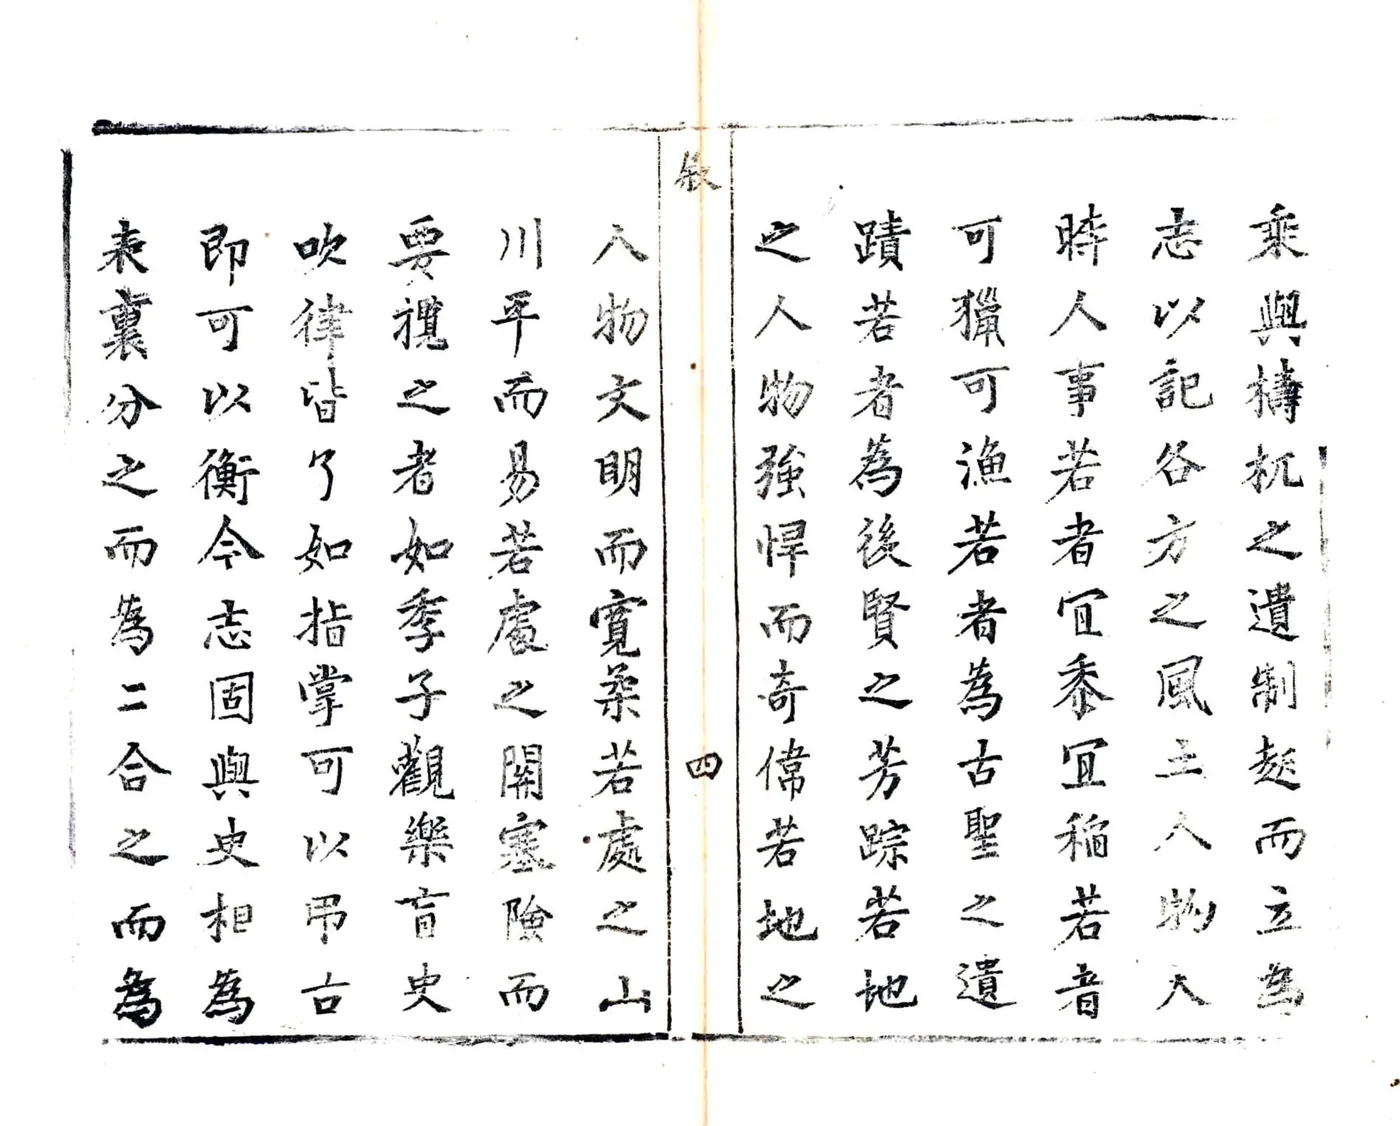 乘與檮杌之遺制起而立為
志以記各方之風土人物大
時人事若者宜黍宜稻若者
可獵可漁若者為古聖之遺
蹟若者為後賢之芳踪若地
之人物強悍而奇偉若地之
敘
四
人物文明而寬柔若處之山
川平而易若處之關塞險而
要攬之者如季子觀樂盲史
吹律皆了如指掌可以弔古
即可以衡今志固與史相為
表裏分之而為二合之而為